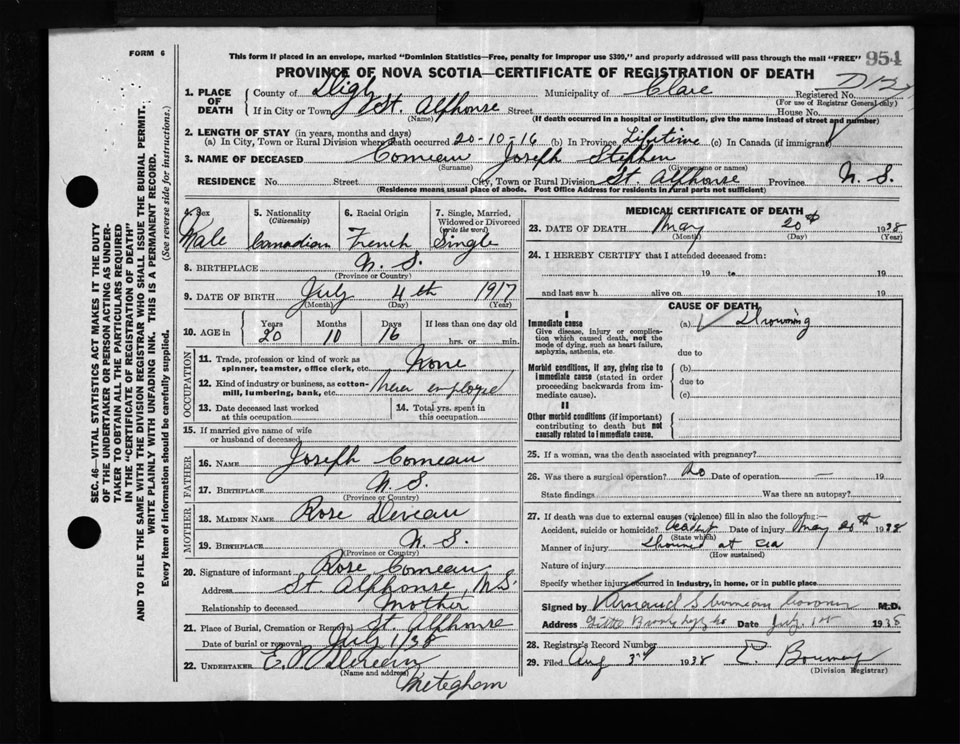 FORM 6
This form if placed in an envelope, marked "Dominion Statistics—Free, penalty for improper use $300," and properly addressed will pass through the mail "FREE"
954
PROVINCE OF NOVA SCOTIA—CERTIFICATE OF REGISTRATION OF DEATH
1. PLACE OF DEATH
County of Digby Municipality of Clare Registered No.
(For use of Registrar General only)
If in City or Town St. Alphonse Street House No.
(Name) (If death occurred in a hospital or institution, give the name instead of street and number)
2. LENGTH OF STAY (in years, months and days)
(a) In City, Town or Rural Division where death occurred 20-10-16 (b) In Province Lifetime (c) In Canada (if immigrant)
3. NAME OF DECEASED Comeau Joseph Stephen
(Surname) (Given name or names)
RESIDENCE No. Street City, Town or Rural Division St. Alphonse Province N.S.
(Residence means usual place of abode. Post Office Address for Residents in rural parts not sufficient)
4. Sex Male
5. Nationality (Citizenship) Canadian
6. Racial Origin French
7. Single, Married, Widowed or Divorced (write the word) Single
8. BIRTHPLACE N.S.
(Province or Country)
9. DATE OF BIRTH July 4th 1917
(Month) (Day) (Year)
10. AGE in Years Months Days If less than one day old
20 10 16 hrs. or min.
OCCUPATION
11. Trade, profession or kind of work as spinner, teamster, office clerk, etc. None
12. Kind of industry or business, as cotton-mill, lumbering, bank, etc. never employed
13. Date deceased last worked at this occupation
14. Total yrs. spent in this occupation
15. If married give name of wife or husband of deceased
FATHER
16. NAME Joseph Comeau
17. BIRTHPLACE N.S.
(Province or Country)
MOTHER
18. MAIDEN NAME Rose Deveau
19. BIRTHPLACE N.S.
(Province or Country)
20. Signature of informant Rose Comeau
Address St. Alphonse, N.S.
Relationship to deceased Mother
21. Place of Burial, Cremation or Removal St. Alphonse
Date of burial or removal July 1/38
22. UNDERTAKER
(Name and address)
Meteghan
MEDICAL CERTIFICATE OF DEATH
23. DATE OF DEATH May 20th 1938
(Month) (Day) (Year)
24. I HEREBY CERTIFY that I attended deceased from:
19 to 19
and last saw h alive on 19
CAUSE OF DEATH
I
Immediate cause
Give disease, injury or complication which caused death, not the mode of dying, such as heart failure, asphyxia, asthenia, etc.
(a) Drowning
due to
Morbid conditions, if any, giving rise to immediate cause (stated in order proceeding backwards from immediate cause).
(b)
due to
(c)
II
Other morbid conditions (if important) contributing to death but not causally related to immediate cause.
25. If a woman, was the death associated with pregnancy?
26. Was there a surgical operation? No Date of operation — 19
State findings Was there an autopsy?
27. If death was due to external causes (violence) fill in also the following:—
Accident, suicide or homicide? Accident Date of injury May 20th 1938
(State which)
Manner of injury at sea
(How sustained)
Nature of injury
Specify whether injury occurred in industry, in home, or in public place
Signed by Coroner M.D.
Address Date July 1st 1938
28. Registrar's Record Number
29. Filed Aug 3rd 1938
(Division Registrar)
SEC. 46—VITAL STATISTICS ACT MAKES IT THE DUTY
OF THE UNDERTAKER OR PERSON ACTING AS UNDER-
TAKER TO OBTAIN ALL THE PARTICULARS REQUIRED
IN THE "CERTIFICATE OF REGISTRATION OF DEATH"
AND TO FILE THE SAME WITH THE DIVISION REGISTRAR WHO SHALL ISSUE THE BURIAL PERMIT.
WRITE PLAINLY WITH UNFADING INK. THIS IS A PERMANENT RECORD.
Every item of information should be carefully supplied. (See reverse side for instructions.)